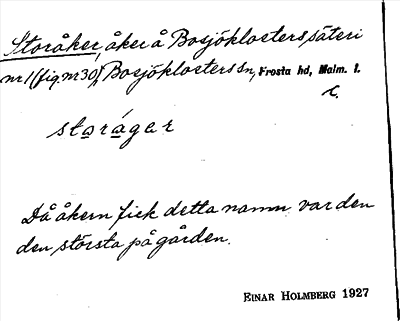 Storåker, åker å Bosjöklosters säteri
nr 1 (fig. nr 30), Bosjöklosters sn, Frosta hd, Malm. l.
storágar
Då åkern fick detta namn var den
den största på gården.
EINAR HOLMBERG 1927